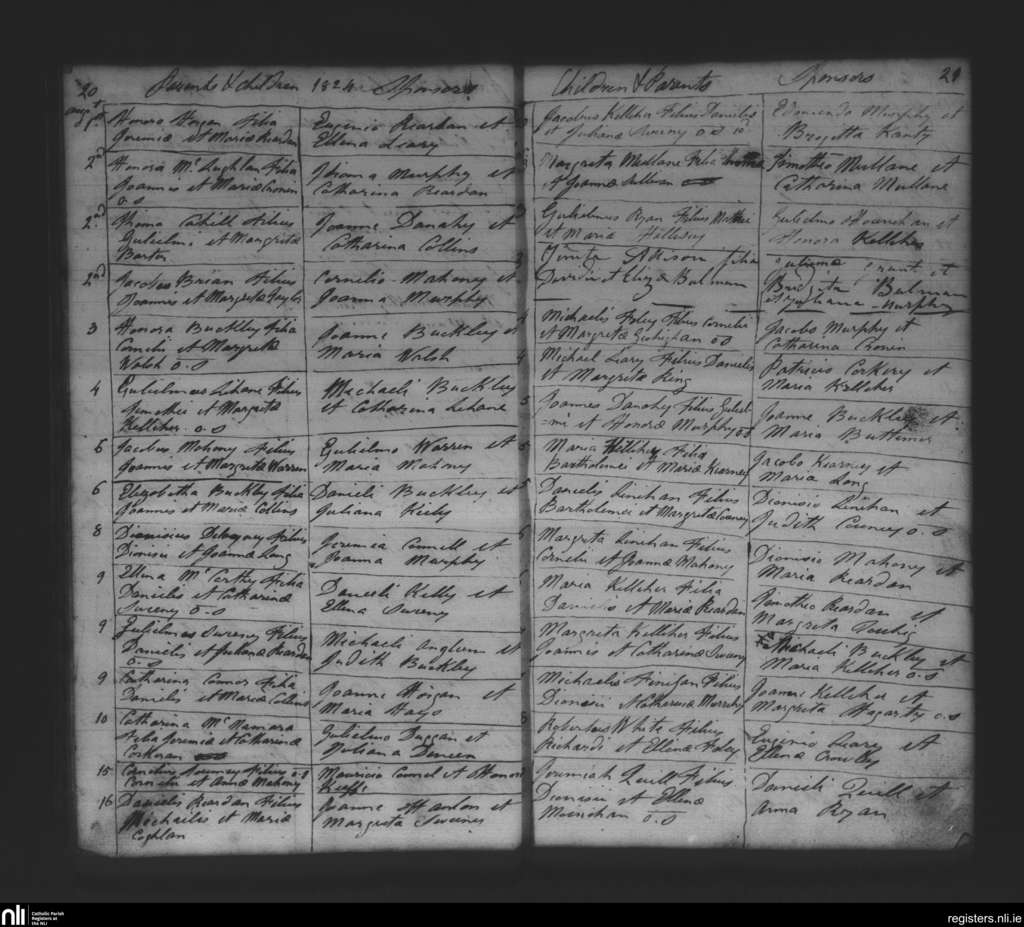 20 Parents & Children 1824 Sponsors
Augt
1st
Honora Horgan Filia
Jeremiæ et Mariæ Reardan
Eugenio Reardan et
Ellena Leary
2nd
Honora Mc Laghlan Filia
Joannis et Mariæ Cronen
o.s
Thoma Murphy et
Catharina Reardan
2nd
Thoma Cahill Filius
Gulielmi et Margritæ
Barter
Joanne Danahy et
Catharina Collins
2nd
Jacobus Brian Filius
Joannes et Margretæ
Cornelio Mahoney et
Joanna Murphy
3
Honora Buckley Filia
Cornelii et Margretæ
Walsh o.s
Joanne Buckley et
Maria Walsh
4
Gulielmus Lehane Filius
Timothei et Margretæ
Kelliher o.s
Michaeli Buckley
et Catharina Lehane
6
Jacobus Mahony Filius
Joannis et Margretæ Warren
Gulielmo Warren et
Maria Mahony
6
Elizabetha Buckley Filia
Joannes et Mariæ Collins
Danieli Buckley et
Juliana Kiely
8
Dionisius Filius
Dionisii et Joannæ Long
Jeremia Connell et
Joanna Murphy
9
Ellena Mc Carthy Filia
Danielis et Catharinæ
Sweeny o.s
Danieli Kelly et
Ellena Sweeny
9
Gulielmus Sweeny Filius
Danielis et Julianæ Reardan
o.s
Michaeli Anglem et
Judith Buckley
9
Catharina Connor Filia
Danielis et Mariæ Collins
Joanne Horgan et
Maria Hays
10
Catharina Mc Namara
Filia Jeremiæ et Catharinæ
Corkoran
Gulielmo Duggan et
Juliana Dineen
15
Cornelius Filius o.s
Cornelii et Annæ Mahony
Mauricio Connel et Honora
Keeffe
16
Danielis Reardan Filius
Michaelis et Mariæ
Coghlan
Joanne et
Margreta Sweeney
Children & Parents Sponsors 21
Jacobus Kelliher Filius Danielis
et Julianæ Sweeny o.s
Edmundo Murphy et
Brigetta
Margreta Mullane Filia
et Joannæ Sullivan
Timotheo Mullane et
Catharina Mullane
Gulielmus Ryan Filius Mathei
et Maria
Gulielmo Hourichan et
Honora Kelliher
Adeson filia
David et Eliza Bulman
Grant et
Bulman
et Juliana Murphy
Michaelis Foley Filius Cornelii
et Margretæ o.s
Jacobo Murphy et
Catharina Cronin
Michael Leary Filius Danielis
et Margritæ Ring
Patricio Corkery et
Maria Kelliher
Joannes Danahy Filius Guliel
=mi et Honoræ Murphy o.s
Joanne Buckley et
Maria Buttimer
Maria Kelliher Filia
Bartholomei et Mariæ Kearney
Jacobo Kearney et
Maria Long
Danielis Linehan Filius
Bartholomei et Margretæ Cooney
Dionisio Linehan et
Judith Cooney o.s
Margreta Linehan Filius
Cornelii et Joannæ Mahony
Dionisio Mahony et
Maria Reardan
Maria Kelliher Filia
Danielis et Mariæ Reardan
Timotheo Reardan et
Margreta
Margreta Kelliher Filius
Joannis et Catharinæ Sweeny
Michaeli Buckley et
Maria Kelliher o.s
Michaelis Finigan Filius
Dionisii et Catharinæ
Joanne Kelleher et
Margreta Hagarty o.s
Robertus White Filius
Richardi et Ellenæ Foley
Eugenio Leary et
Ellena Crowley
Jeremiah Quill Filius
Dionisii et Ellenæ
Moinihan o.s
Danieli Quill et
Anna Ryan
nli
Catholic Parish
Registers at
the NLI
registers.nli.ie